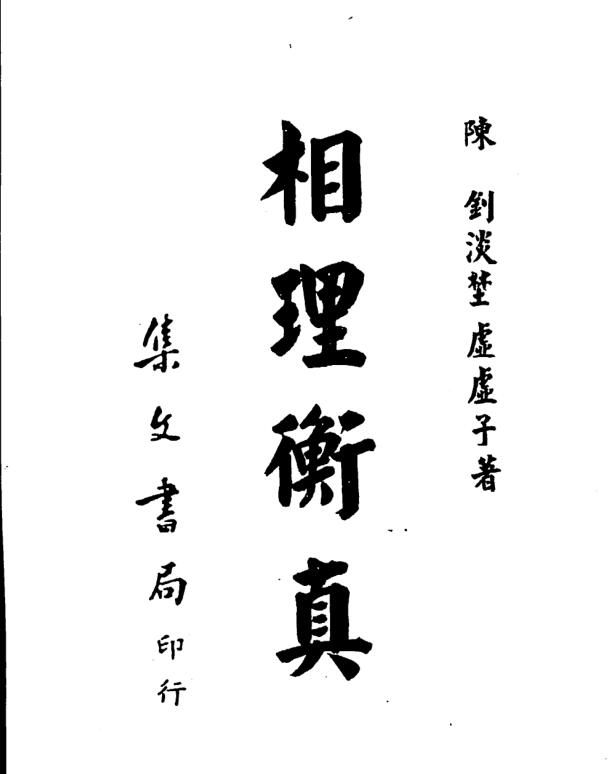 陳 釗淡埜虛虛子著
相理衡真
集文書局印行